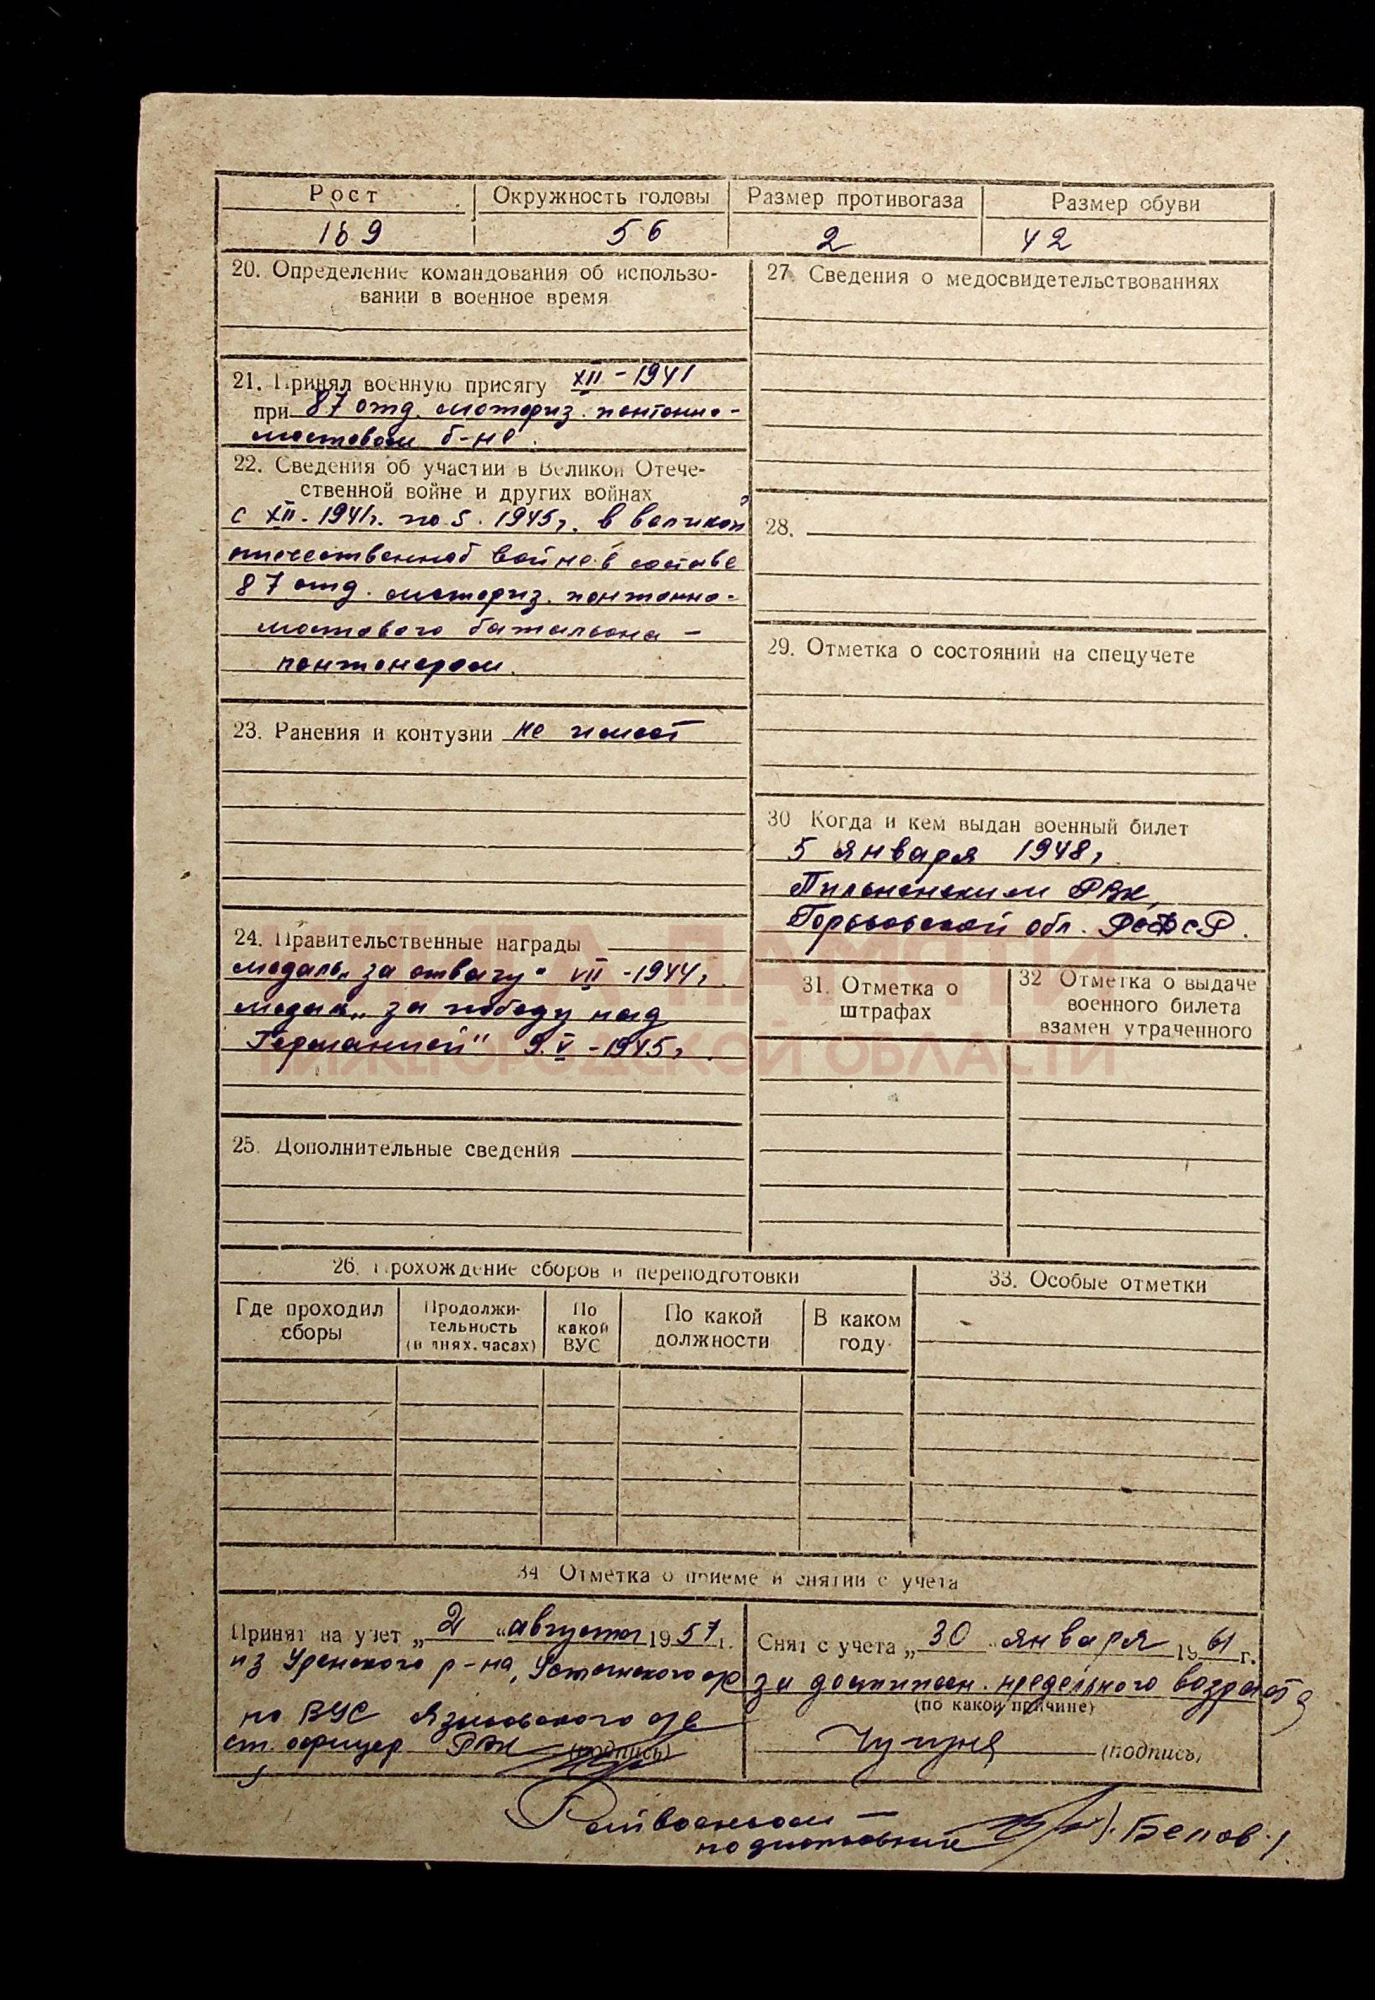 Рост
Окружность головы
Размер противогаза
Размер обуви
169
56
2
42
20. Определение командования об использо-
вании в военное время
21. Принял военную присягу XII - 1941
при 87 отд. моториз. понтонно-
мостовом б-не.
22. Сведения об участии в Великой Отече-
ственной войне и других войнах
с XII - 1941г. по 5. 1945г. в великой
отечественной войне в составе
87 отд. моториз. понтонно-
мостового батальона -
понтонером.
23. Ранения и контузии не имеет
24. Правительственные награды
медаль „за отвагу“ VII - 1944г.
медаль „за победу над
Германией" 9.V - 1945г.
25. Дополнительные сведения
27. Сведения о медосвидетельствованиях
28.
29. Отметка о состоянии на спецучете
30 Когда и кем выдан военный билет
5 января 1948г.
Пильненским РВК,
Горьковской обл. РСФСР.
31. Отметка о
штрафах
32 Отметка о выдаче
военного билета
взамен утраченного
КНИГА ПАМЯТИ
НИЖЕГОРОДСКОЙ ОБЛАСТИ
26. Прохождение сборов и переподготовки
Где проходил
сборы
Продолжи-
тельность
(в днях, часах)
По
какой
ВУС
По какой
должности
В каком
году
33. Особые отметки
34 Отметка о приеме и снятии с учета
Принят на учет „2“ августа 1957 г.
из Уренского р-на,
по ВУС Языковского
ст. офицер РВК (подпись)
Снят с учета „30“ января 1961 г.
за достижен. предельного возраста
(по какой причине)
(подпись)
Райвоенком -
подполковник (Белов.)